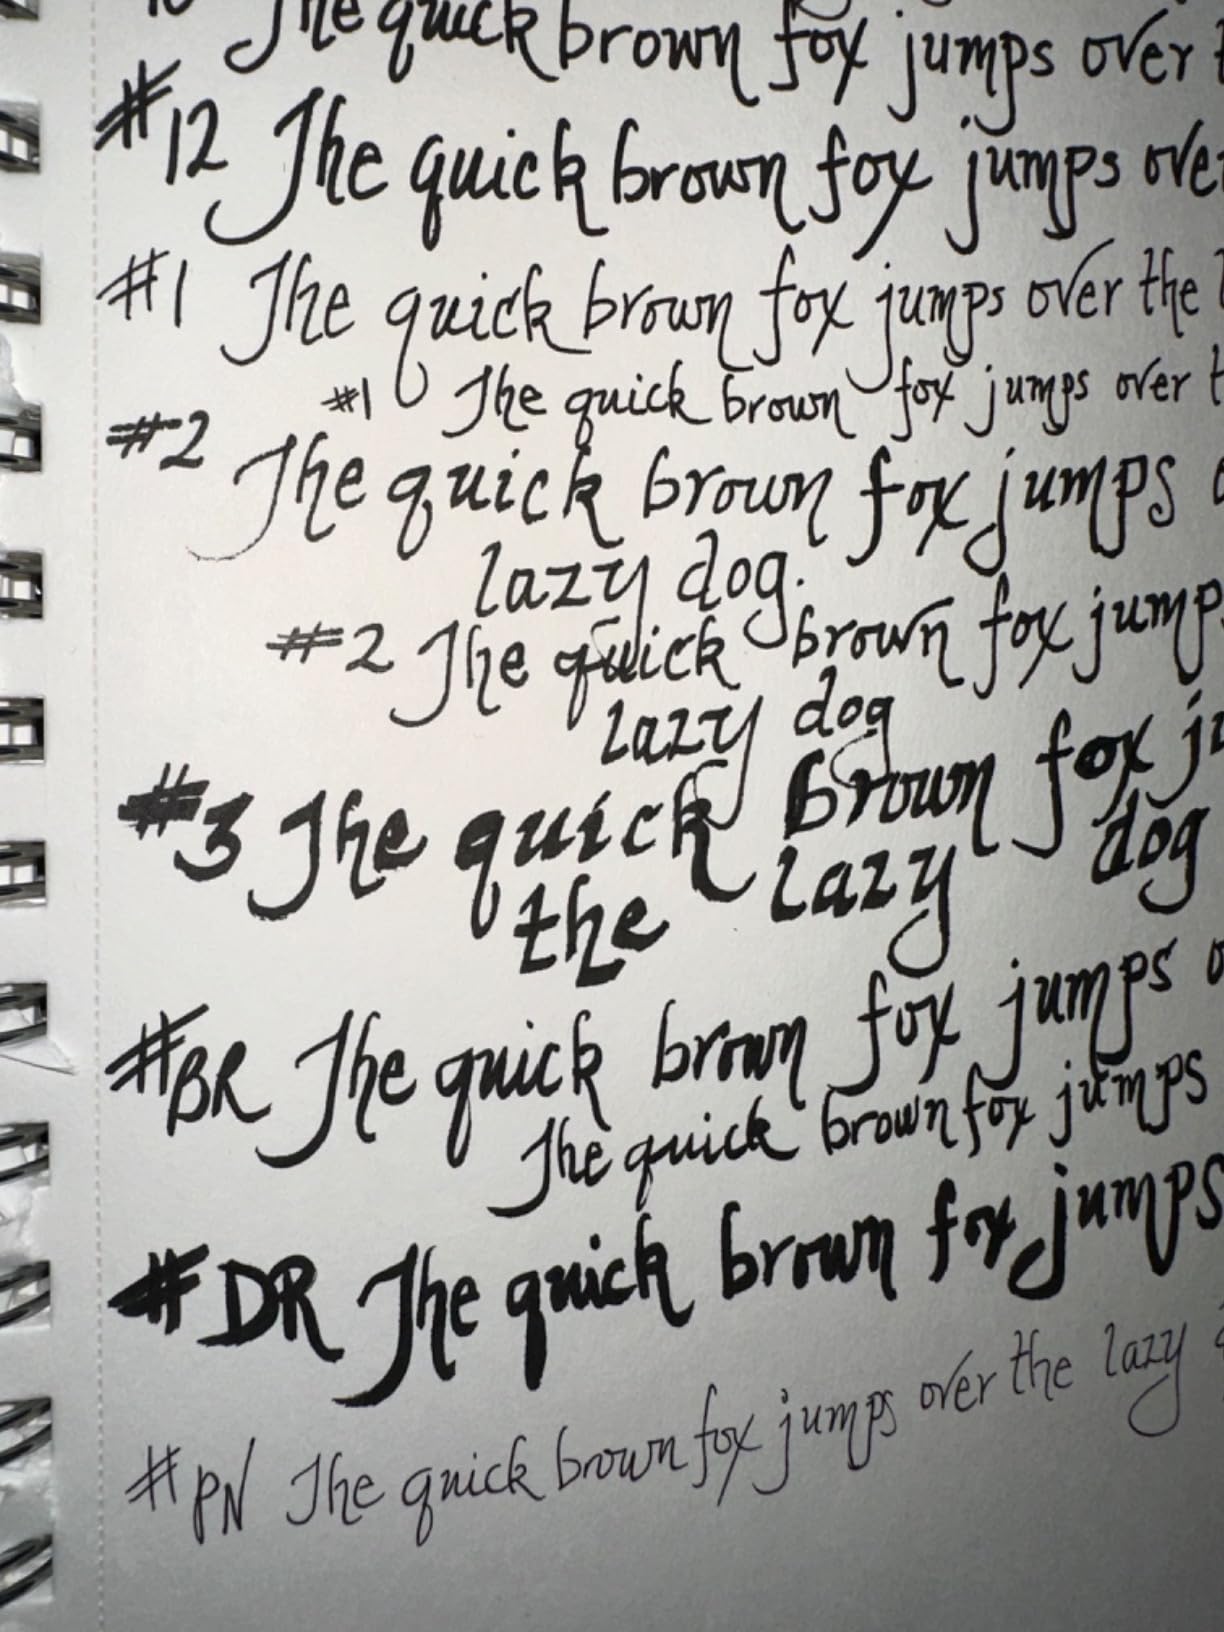 The quick brown fox jumps over
#12 The quick brown fox jumps over
#1 The quick brown fox jumps over the
#1 The quick brown fox jumps over
#2 The quick brown fox jumps
lazy dog.
#2 The quick brown fox jumps
lazy dog
#3 The quick brown fox
the lazy dog
#BR The quick brown fox jumps
The quick brown fox jumps
#DR The quick brown fox jumps
#PN The quick brown fox jumps over the lazy